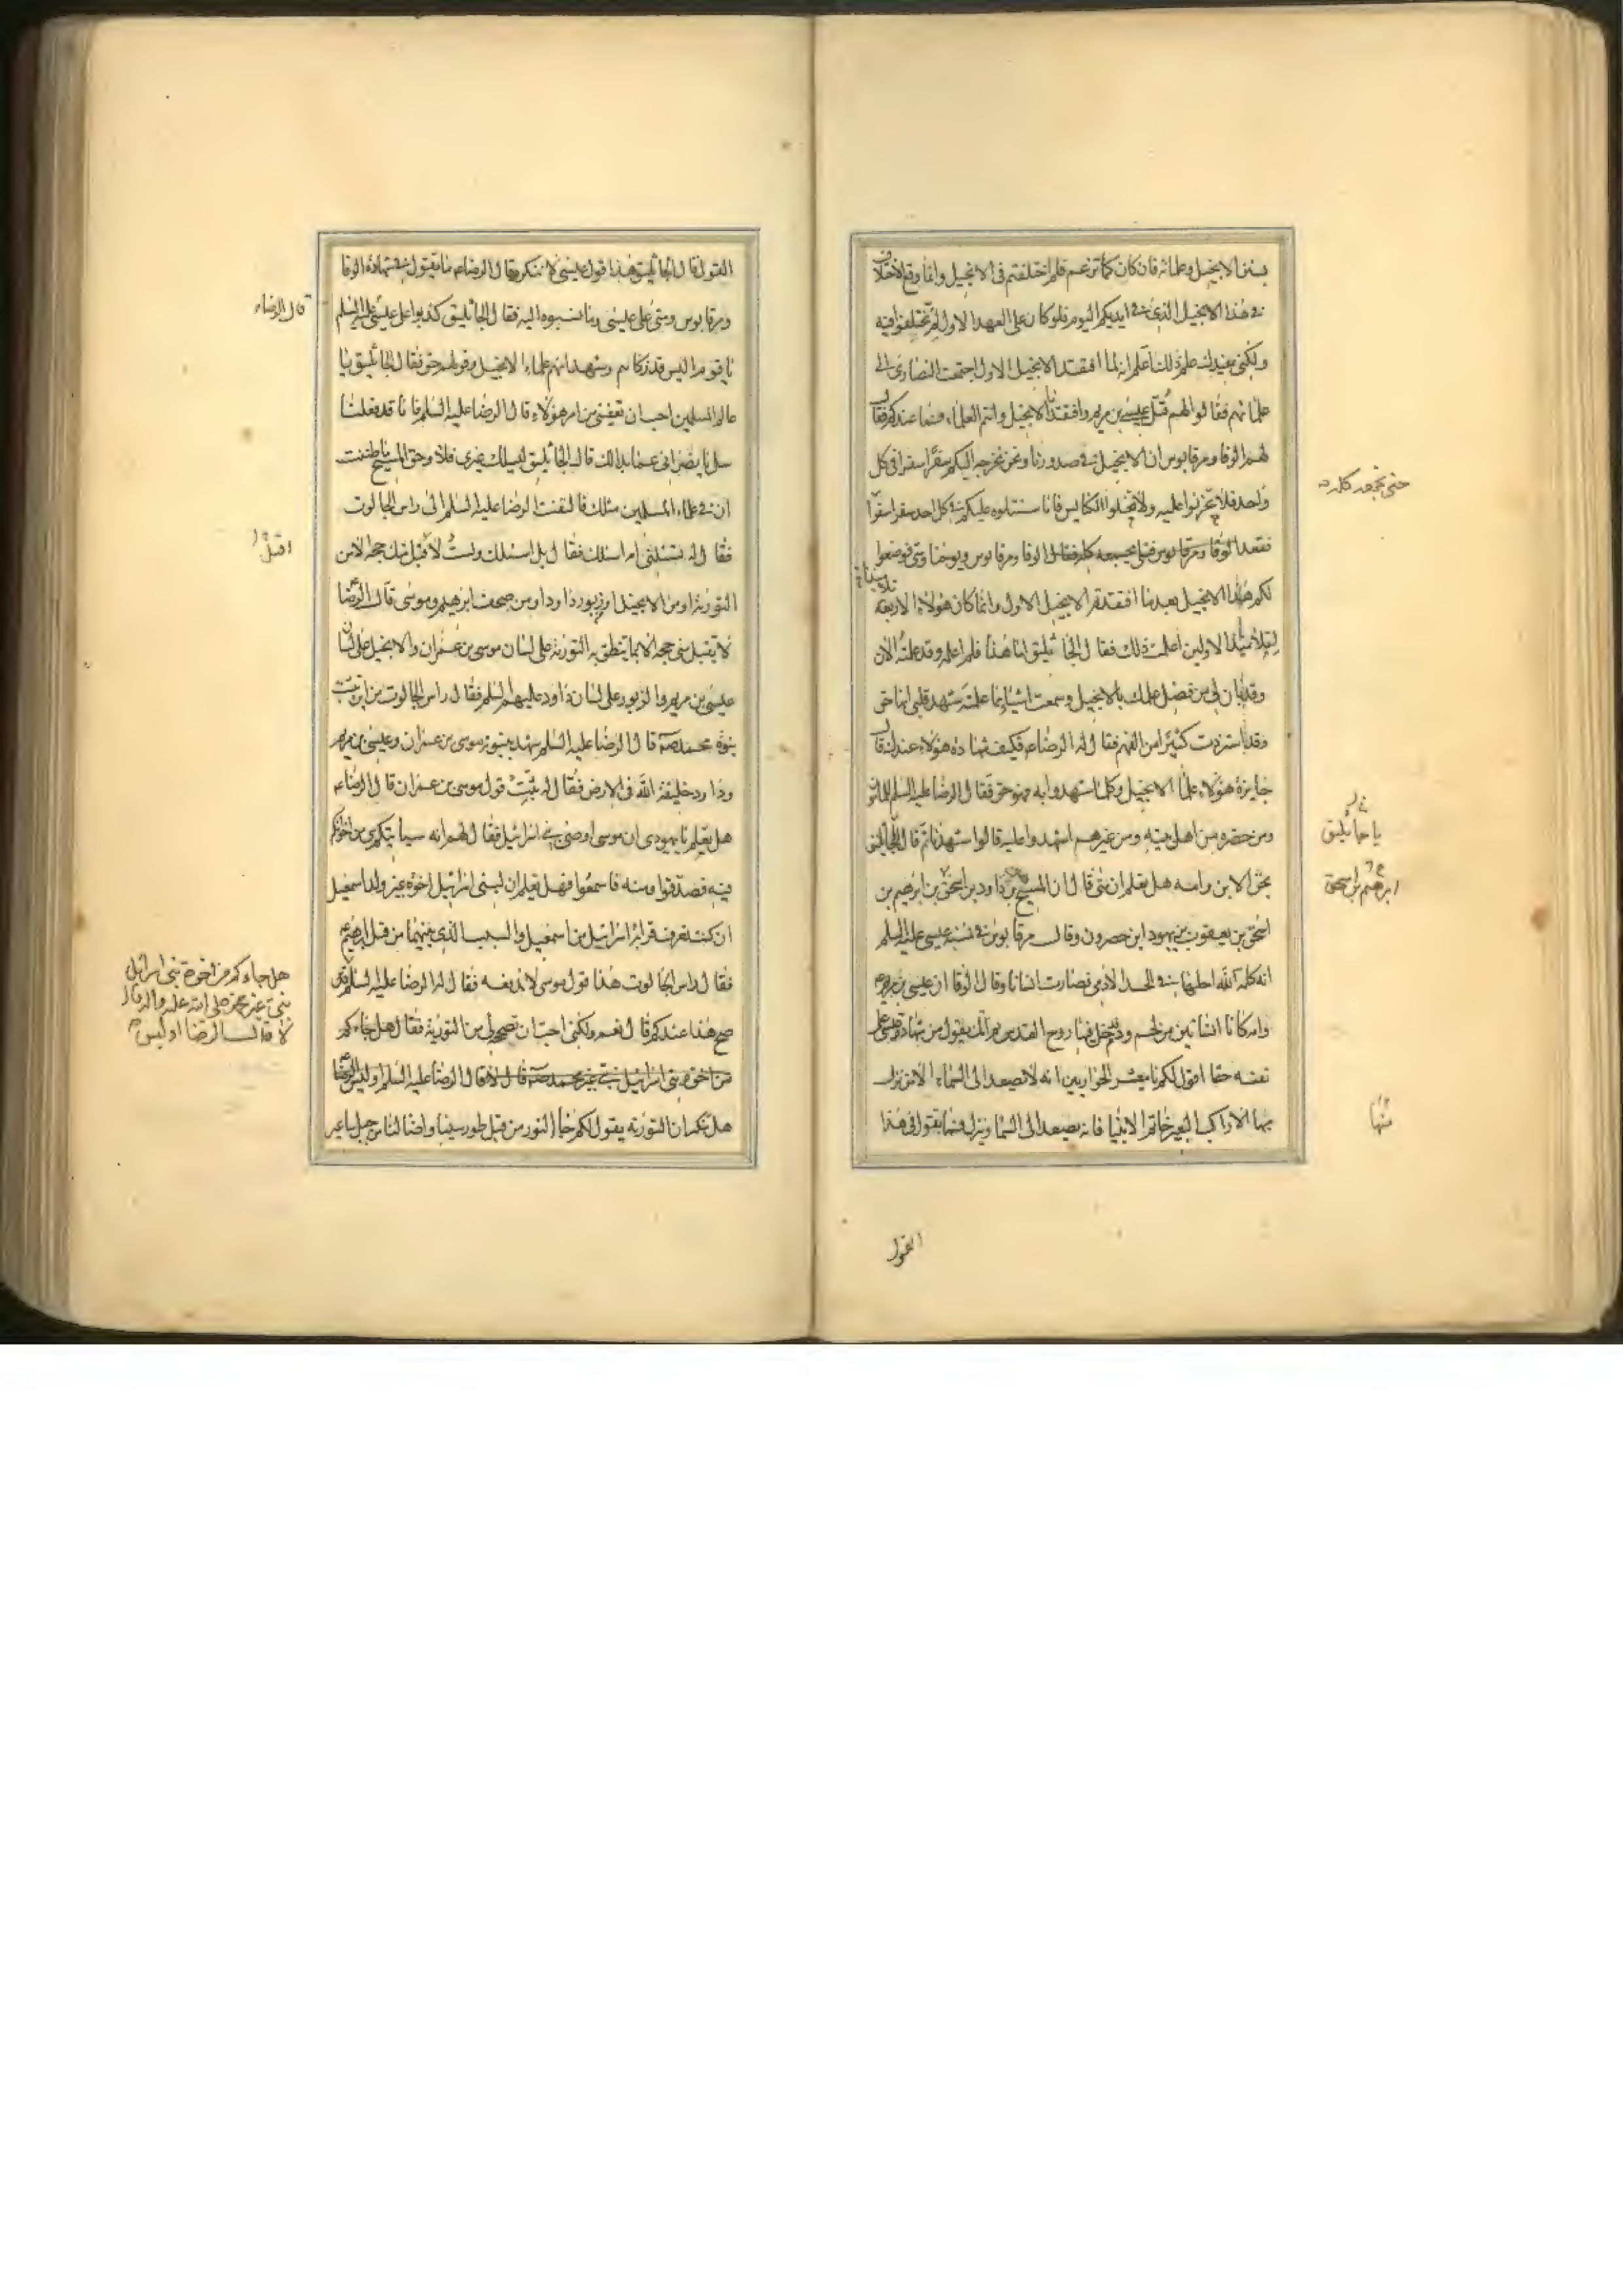 بسنن الانجيل وعلمائه فان كان كما تزعم فلم اختلفتم فى الانجيل وانما وقع الاختلاف
فى هذا الانجيل الذى فى ايديكم اليوم فلو كان على العهد الاول لم تختلفوا فيه
ولكنى مفيدك علم ذلك اعلم انه لما افتقد الانجيل الاول اجتمعت النصارى الى
علمائهم فقالوا لهم قتل عيسى بن مريم وافتقدنا الانجيل وانتم العلماء فما عندكم فقال
لهم الوقا ومرقابوس ان الانجيل فى صدورنا ونحن نخرجه اليكم سفرا سفرا فى كل
واحد فلا تحزنوا عليه ولا تخلوا الكنايس فانا سنتلوه عليكم فى كل احد سفرا سفرا
حتى نجمعه كله
فقعد الوقا ومرقابوس ويوحنا ومتى فوضعوا
لكم هذا الانجيل بعد ما افتقدتم الانجيل الاول وانما كان هؤلاء الاربعة
تلاميذ الاولين اعلمت ذلك فقال الجاثليق اما هذا فلم اعلمه وقد علمته الان
وقد بان لى من فضل علمك بالانجيل وسمعت اشياء مما علمته شهد قلبى انها حق
وقد استزدت كثيرا من الفهم فقال له الرضا ع فكيف شهادة هؤلاء عندك قال
جايزة هؤلاء علماء الانجيل وكلما شهدوا به فهو حق فقال الرضا عليه السلم للمامون
ومن حضره من اهل بيته ومن غيرهم اشهدوا عليه قالوا شهدنا ثم قال للجاثليق
يا جاثليق
بحق الابن وامه هل تعلم ان متى قال ان المسيح بن داود بن ابرهيم بن
ابرهيم بن اسحق
اسحق بن يعقوب بن يهود ابن حصرون وقال مرقابوس فى نسبة عيسى عليه السلم
انه كلمة الله احلها فى الجسد الادمى فصارت انسانا وقال الوقا ان عيسى بن مريم
وامه كانا انسانين من لحم ودم فدخل فيها روح القدس ثم انك تقول من شهادة عيسى على
نفسه حقا اقول لكم يا معشر الحواريين انه لا يصعد الى السماء الا من نزل
منها
منها الا راكب البعير خاتم الانبيا فانه يصعد الى السما وينزل فما تقول فى هذا
القول
القول قال الجاثليق هذا قول عيسى لا ننكره قال الرضا ع فما تقول فى شهادة الوقا
ومرقابوس ومتى على عيسى وما نسبوه اليه فقال الجاثليق كذبوا على عيسى عليه السلم
قال الرضا ع
يا قوم اليس قد زكاهم وشهد انهم علماء الانجيل وقولهم حق فقال الجاثليق يا
عالم المسلمين احب ان تعفينى من امر هؤلاء قال الرضا عليه السلم فانا قد فعلنا
سل يا نصرانى عما بدا لك قال الجاثليق ليسالك غيرى فلا وحق المسيح ما ظننت
ان فى علماء المسلمين مثلك فالتفت الرضا عليه السلم الى راس الجالوت
فقال له تسئلنى ام اسئلك فقال بل اسئلك ولست اقبل منك حجة الا من
اقبل
التورية او من الانجيل او زبور داود او من صحف ابرهيم وموسى قال الرضا
لا تقبل منى حجة الا بما تنطق به التورية على لسان موسى بن عمران والانجيل على لسان
عيسى بن مريم والزبور على لسان داود عليهم السلم فقال راس الجالوت من اين تثبت
نبوة محمد ص قال الرضا عليه السلم شهد بنبوته موسى بن عمران وعيسى بن مريم
وداود خليفة الله فى الارض فقال له ثبت قول موسى بن عمران قال الرضا ع
هل تعلم يا يهودى ان موسى اوصى بنى اسرائيل فقال لهم انه سياتيكم نبى من اخوانكم
فيه فصدقوا ومنه فاسمعوا فهل تعلم ان لبنى اسرائيل اخوة غير ولد اسمعيل
ان كنت تعرف قرابة اسرائيل من اسمعيل والسبب الذى بينهما من قبل ابرهيم ع
فقال راس الجالوت هذا قول موسى لا ندفعه فقال له الرضا عليه السلم
هل جاءكم من اخوة بنى اسرائيل
نبى غير محمد صلى الله عليه واله قال
لا قال الرضا اوليس
صح هذا عندكم قال نعم ولكنى احب ان تصححه لى من التورية فقال هل جاءكم
من اخوة بنى اسرائيل نبى غير محمد ص قال لا قال الرضا عليه السلم اوليس
هل تنكر ان التورية يقول لكم جاء النور من قبل طور سيناء واضا لنا من جبل ساعير